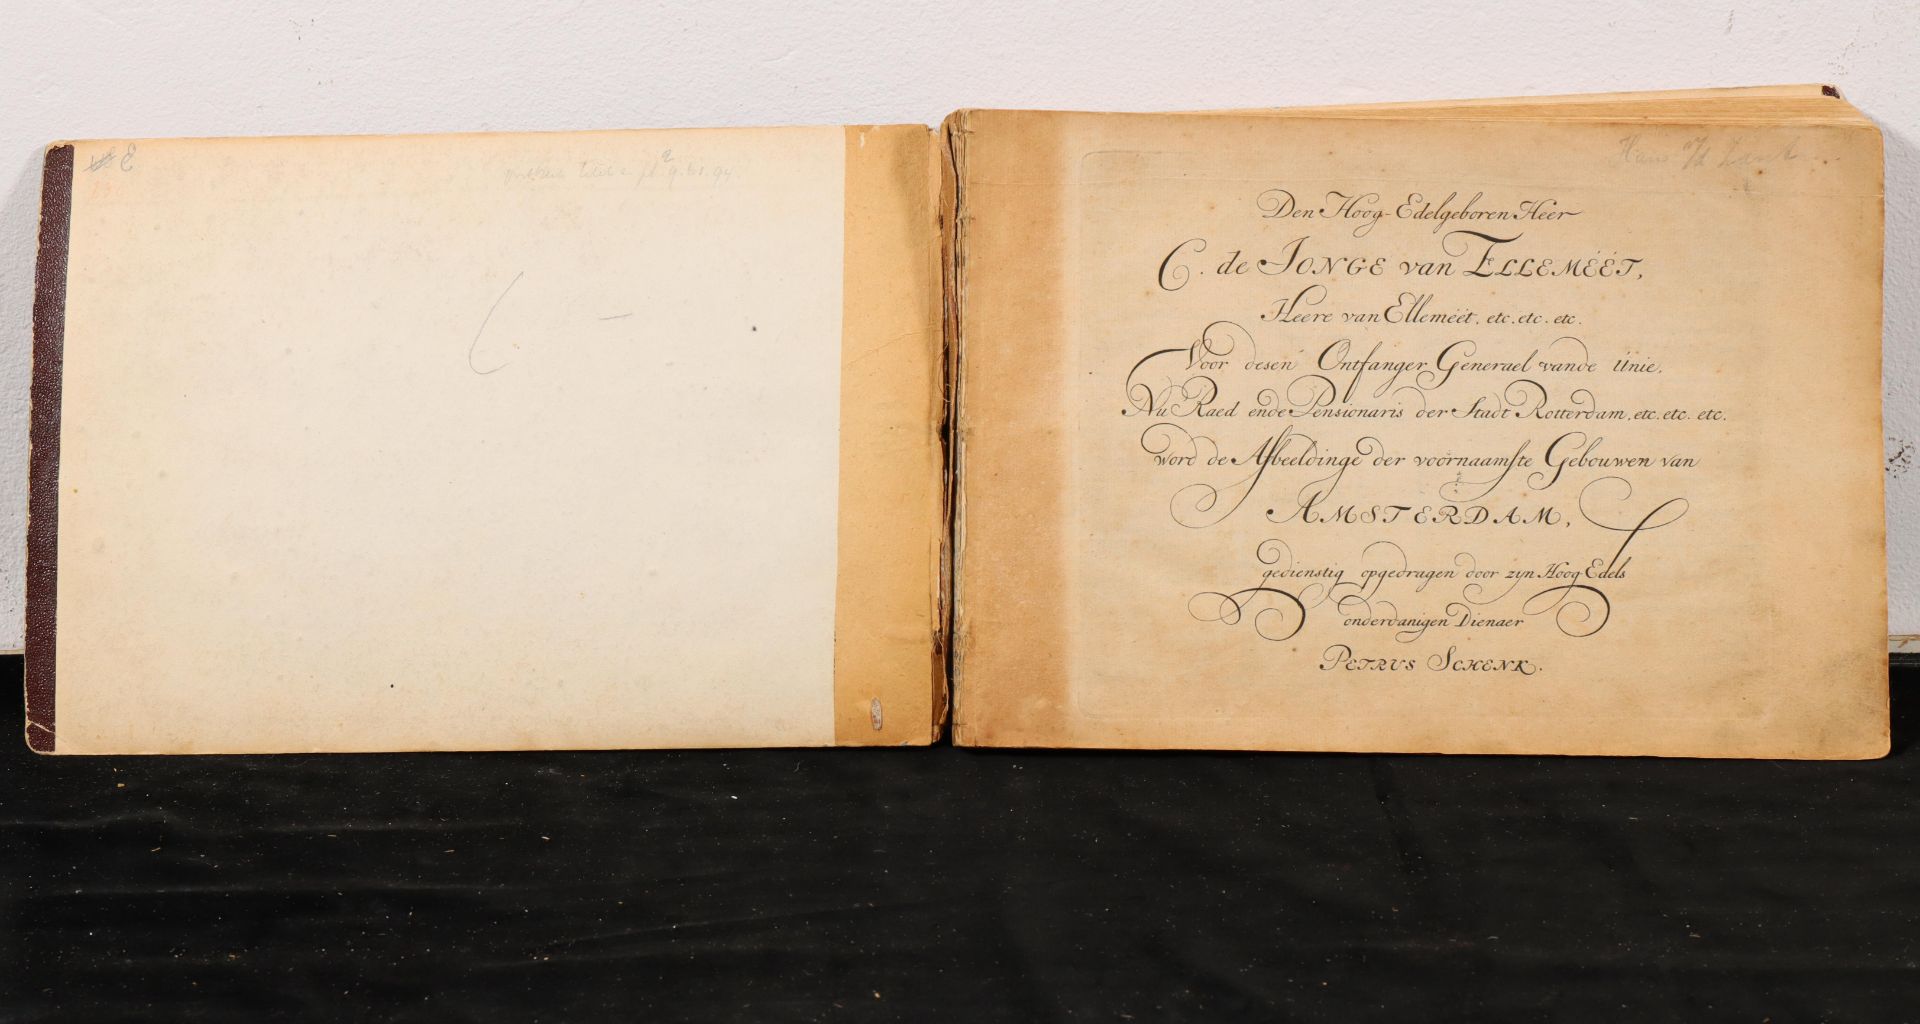 E
Den Hoog-Edelgeboren Heer
C. de JONGE van ELLEMÉÉT,
Heere van Elleméét, etc. etc. etc.
Voor desen Ontfanger Generael vande Unie,
Nu Raed ende Pensionaris der Stadt Rotterdam, etc. etc. etc.
word de Afbeeldinge der voornaamste Gebouwen van
AMSTERDAM,
gedienstig opgedragen door zyn Hoog Edels
onderdanigen Dienaer
PETRUS SCHENK.